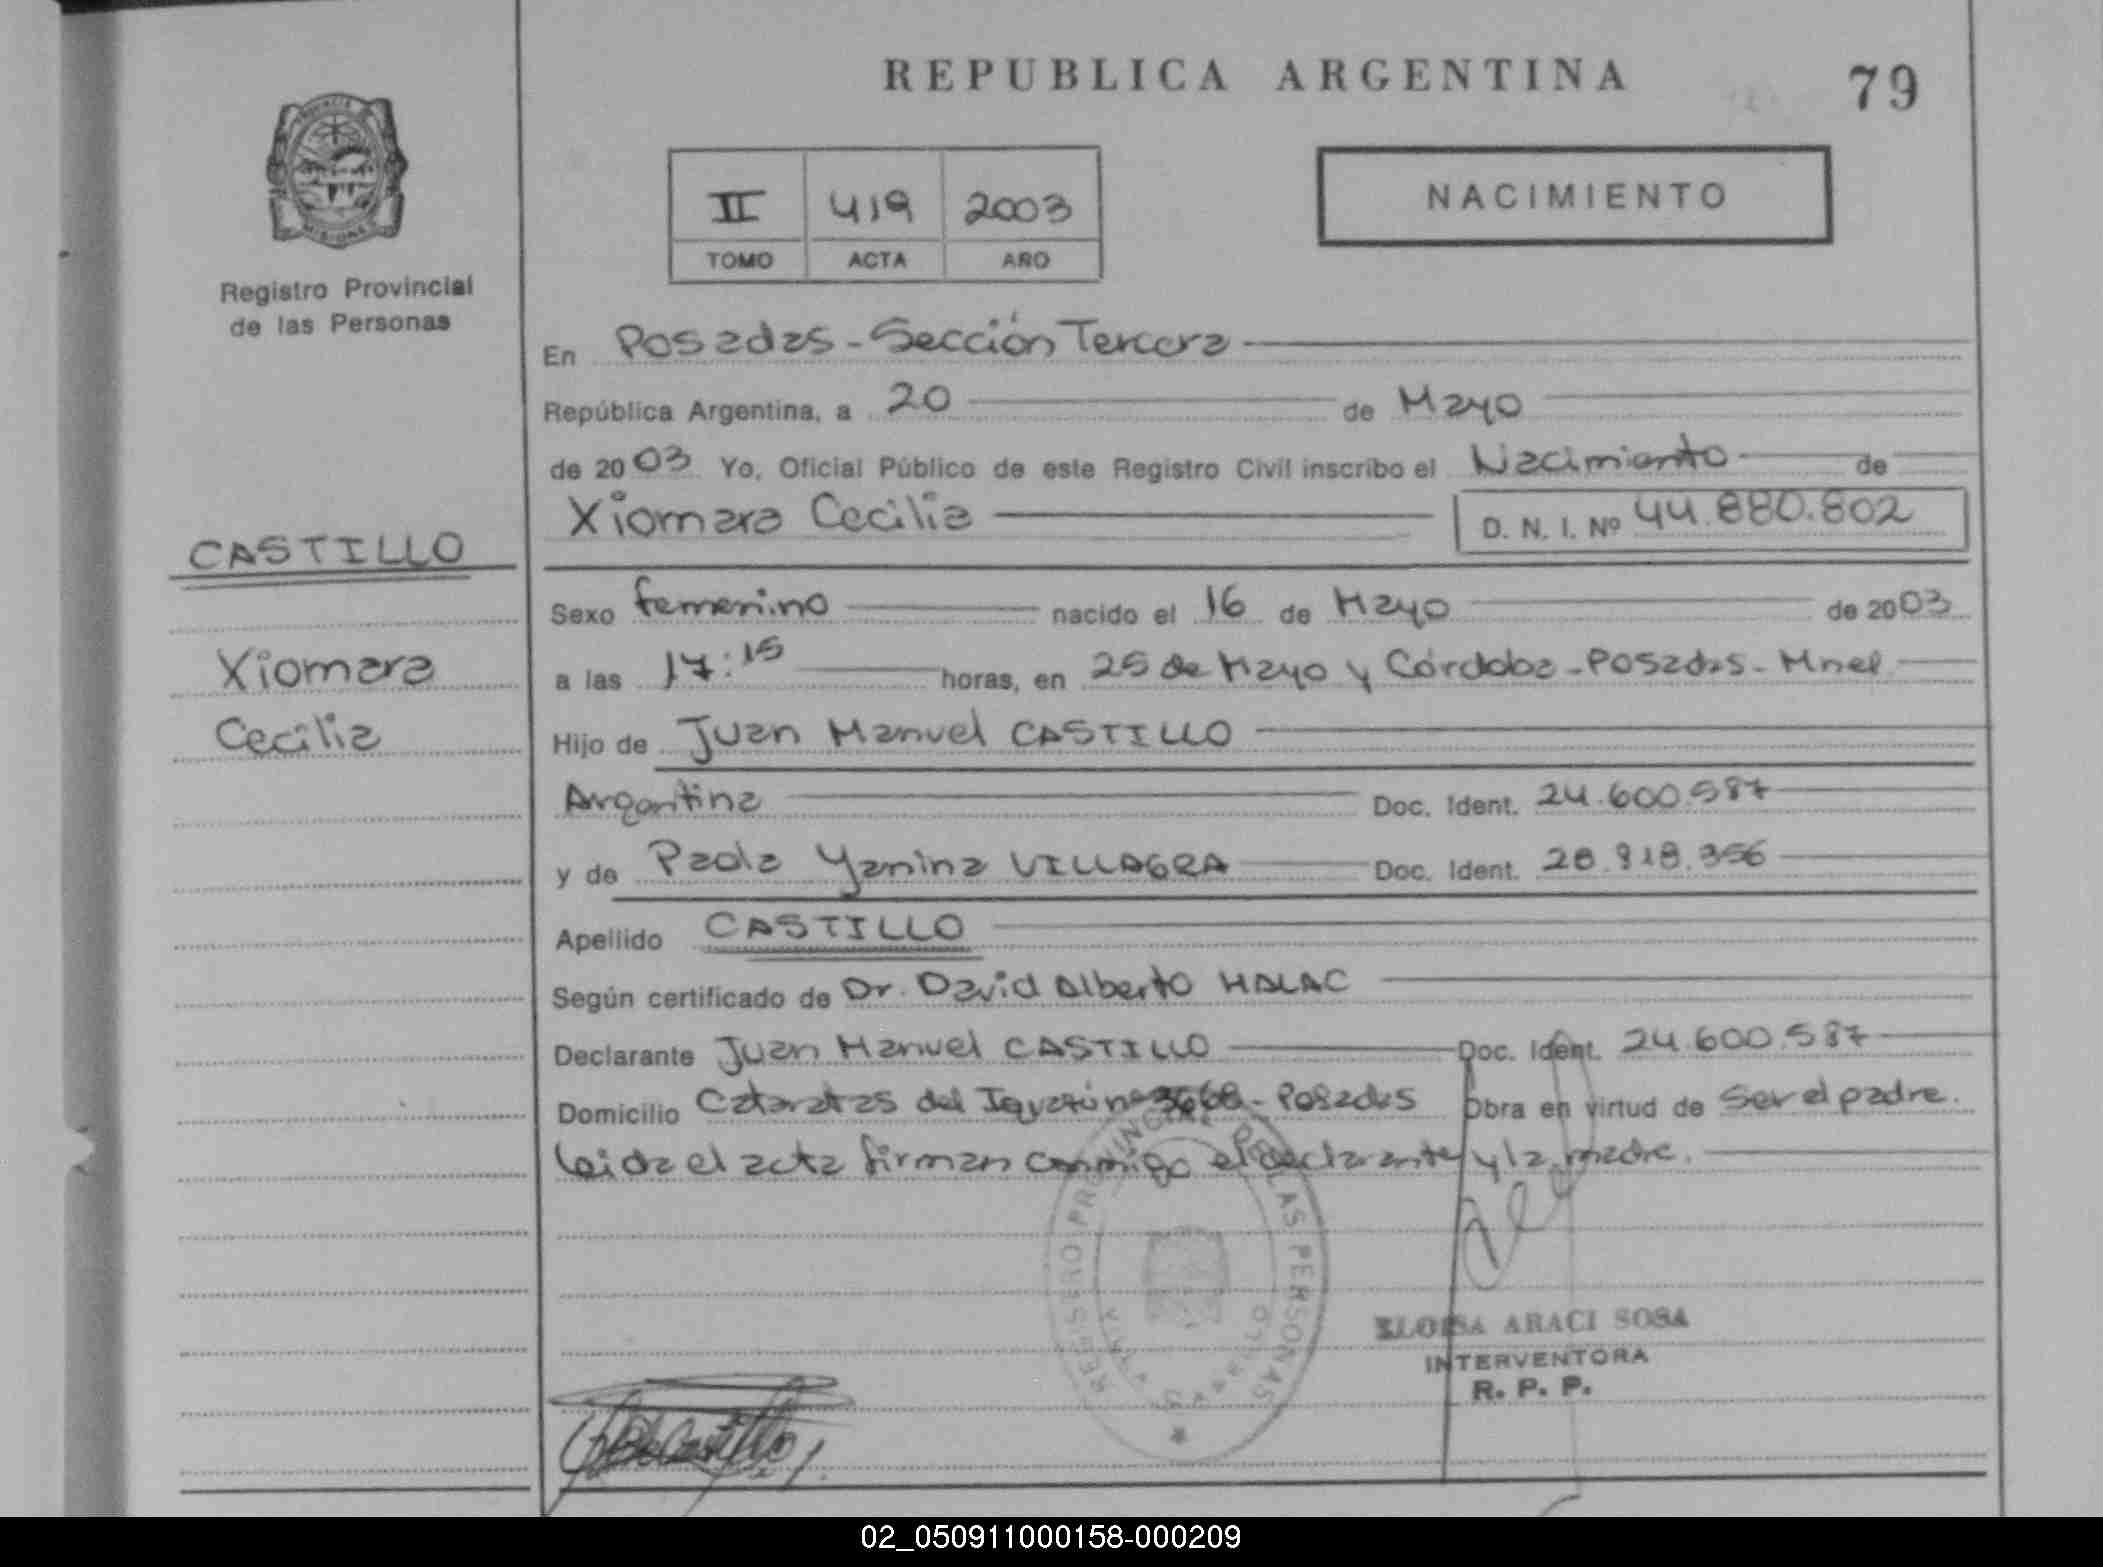 REPUBLICA ARGENTINA
79
II 419 2003
TOMO ACTA AÑO
NACIMIENTO
Registro Provincial
de las Personas
En Posadas - Sección Tercera
República Argentina, a 20 de Mayo
de 2003 Yo, Oficial Público de este Registro Civil inscribo el Nacimiento de
Xiomara Cecilia D. N. I. Nº 44.880.802
CASTILLO
Xiomara
Cecilia
Sexo femenino nacido el 16 de Mayo de 2003
a las 17:15 horas, en 25 de Mayo y Córdoba - Posadas - Mnes
Hijo de Juan Manuel CASTILLO
Argentina Doc. Ident. 24.600.587
y de Paola Yanina VILLAGRA Doc. Ident. 28.818.356
Apellido CASTILLO
Según certificado de Dr. David Alberto HALAC
Declarante Juan Manuel CASTILLO Doc. Ident. 24.600.587
Domicilio Cataratas del Iguazú nº 3668 - Posadas Obra en virtud de Ser el padre.
Leida el acta firman conmigo el declarante y la madre.
REGISTRO PROVINCIAL DE LAS PERSONAS
ELOISA ARACI SOSA
INTERVENTORA
R. P. P.
02_050911000158-000209